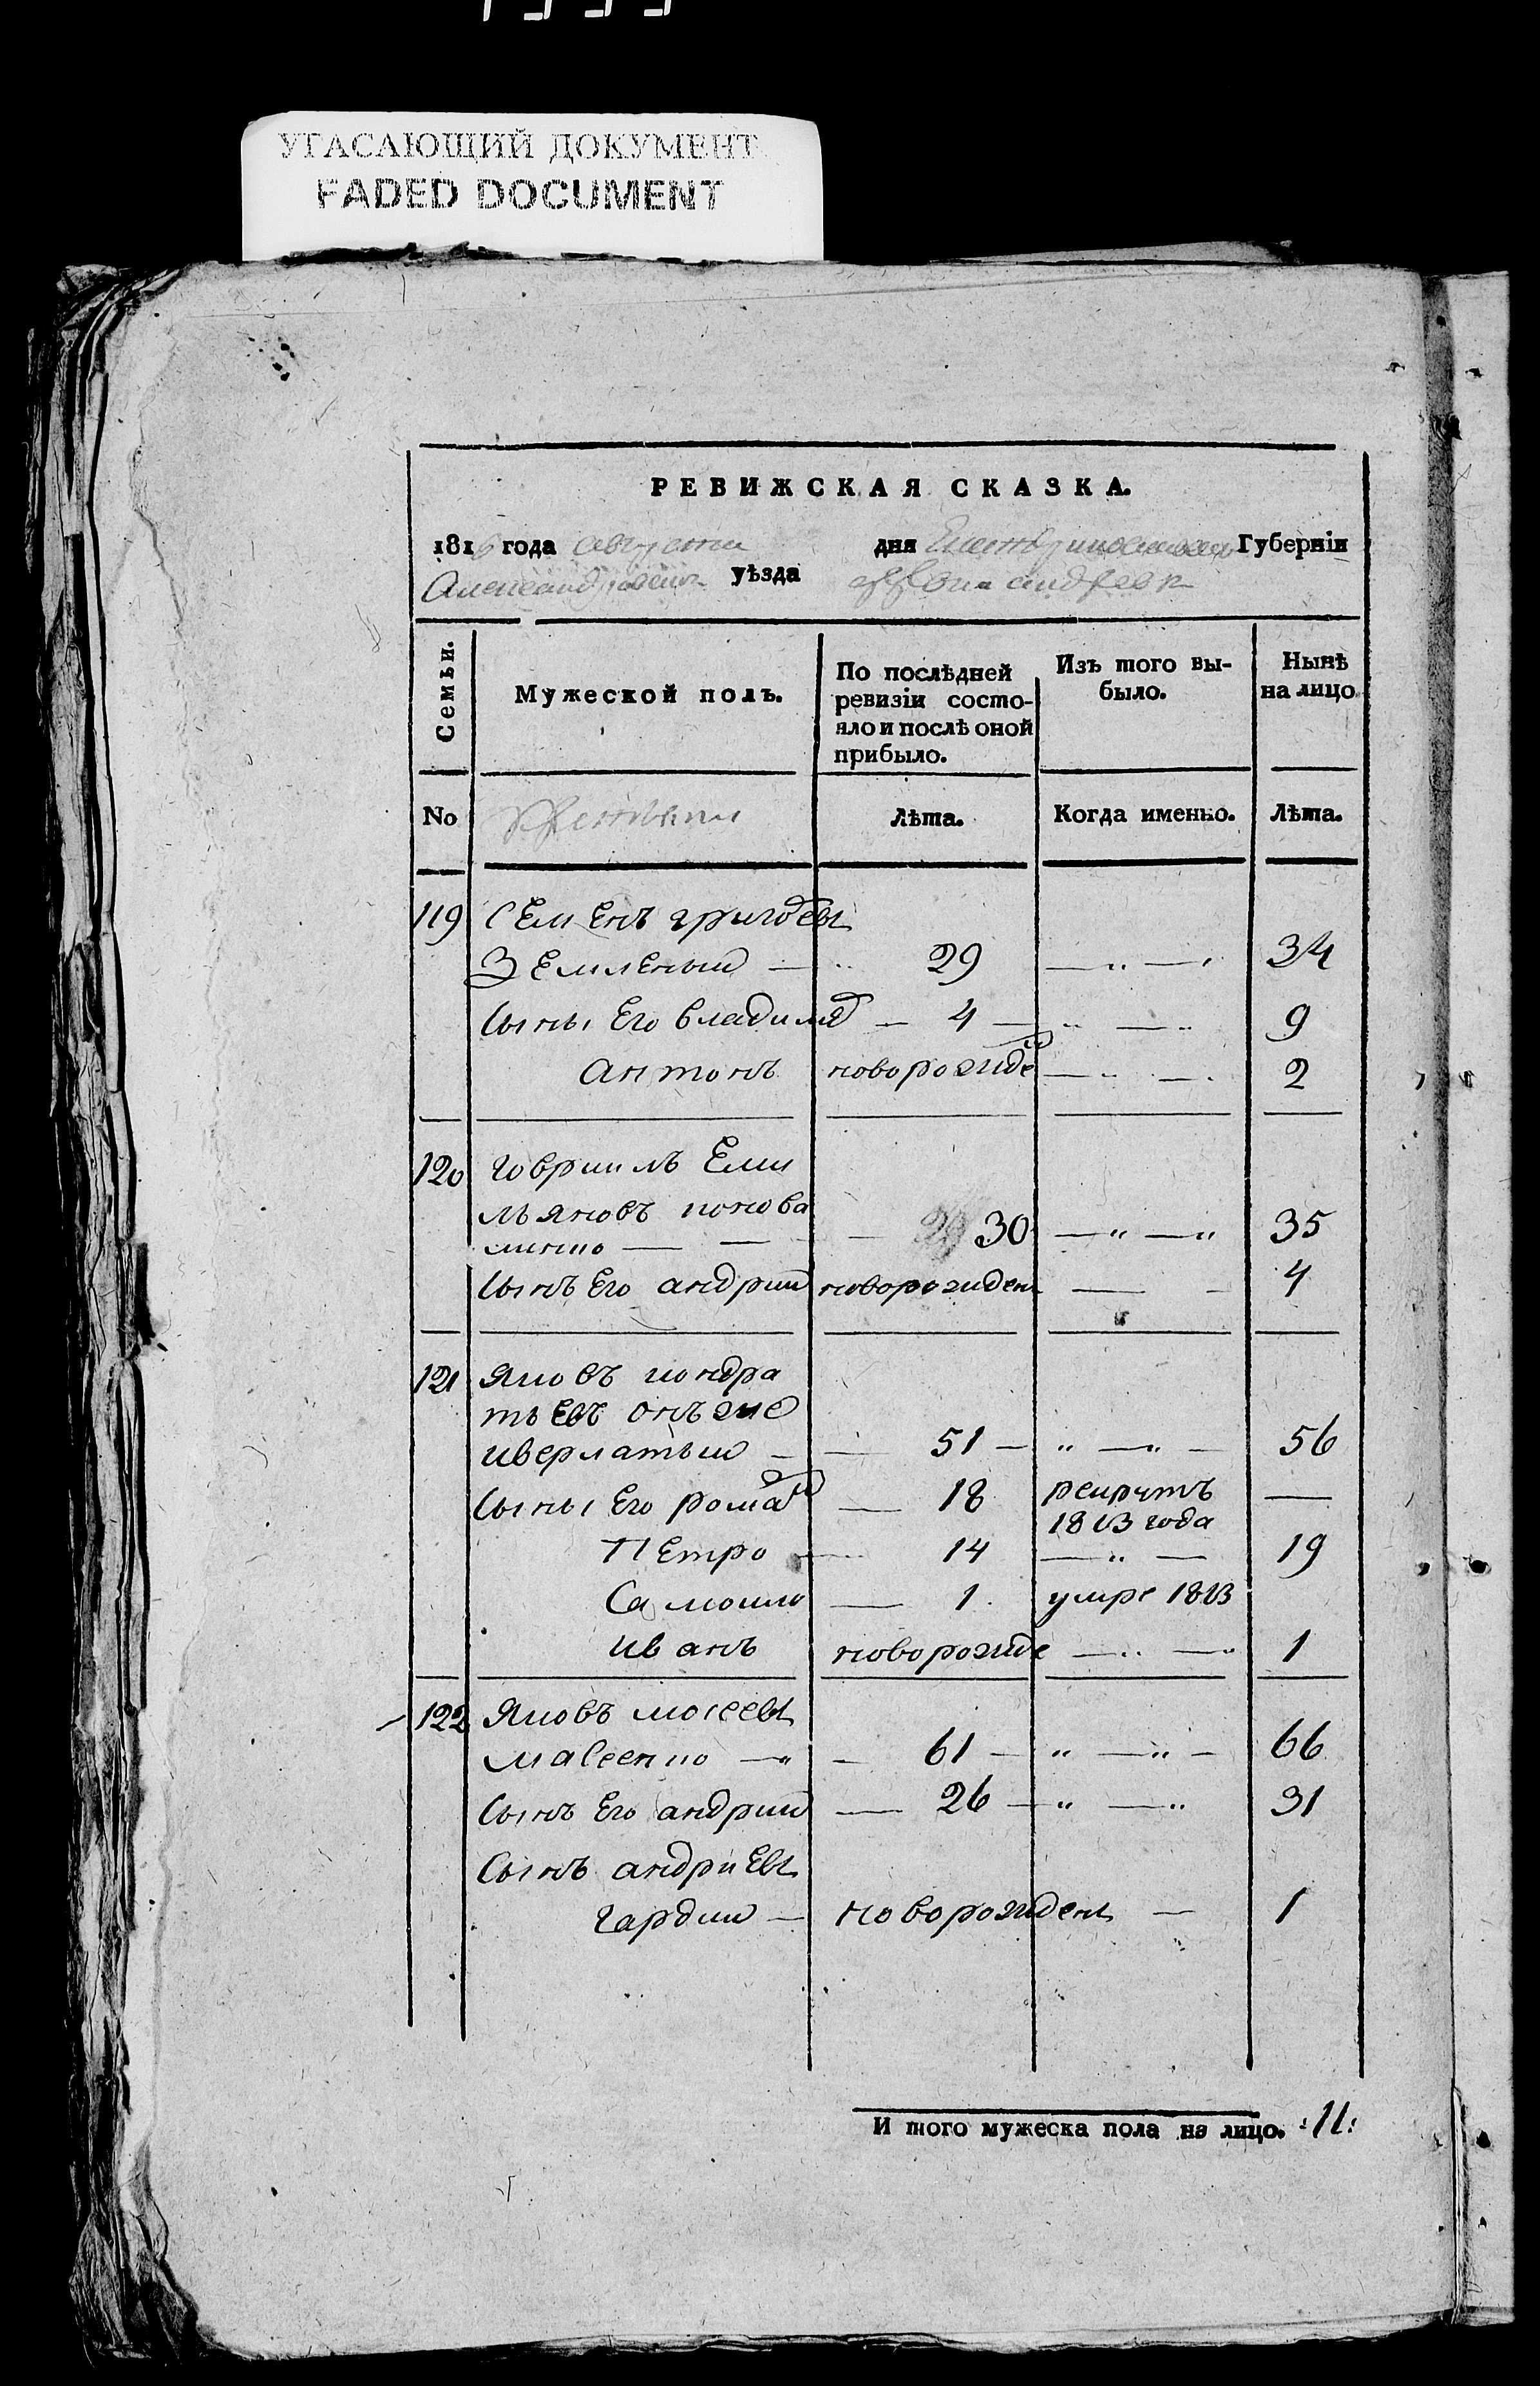 УГАСАЮЩИЙ ДОКУМЕНТ
FADED DOCUMENT
РЕВИЖСКАЯ СКАЗКА.
1816 года августа дня Екатеринославской Губерніи
Александровскаго уѣзда
Семьи.
Мужеской полъ.
По послѣдней
ревизіи состо-
яло и послѣ оной
прибыло.
Изъ того вы-
было.
Нынѣ
на лицо
No
Лѣта.
Когда именно.
Лѣта.
119 Семенъ григоевъ
Земленый 29 34
Сыны Его владимя 4 9
антонъ новорожде 2
120 говриилъ Еми
льяновъ конова
ленко 30 35
Сынъ Его андрий новорожден 4
121 яковъ кондра
тьевъ онъже
иверлатый 51 56
Сыны Его рома 18 рекрутъ
1813 года
Петро 14 19
Самойло 1 умре 1813
иванъ новорожде 1
122 яковъ мосеевъ
масенко 61 66
Сынъ Его андрий 26 31
Сынъ андриевъ
гардий новорожденъ 1
И того мужеска пола на лицо. :11: